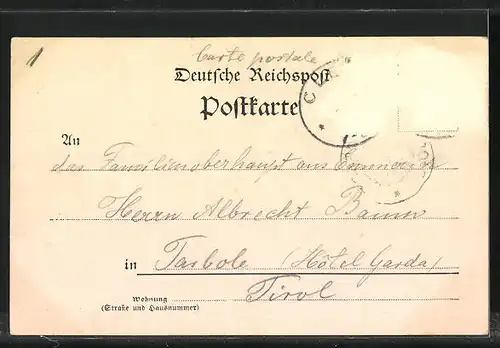 1
Carte postale
Deutsche Reichspost
Postkarte
An
das Familienoberhaupt aus
Herrn Albrecht Baum
in Torbole (Hôtel Garda)
Tirol
Wohnung
(Straße und Hausnummer)